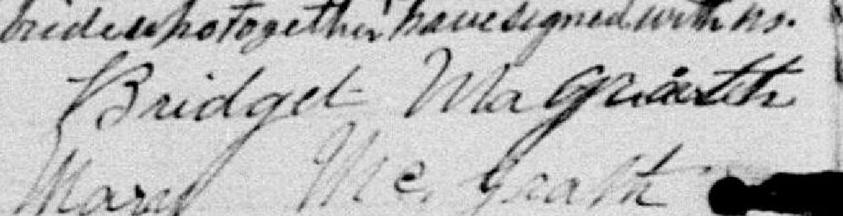 bride who together have signed with us.
Bridget MaGrath
Mary Mc. Grath